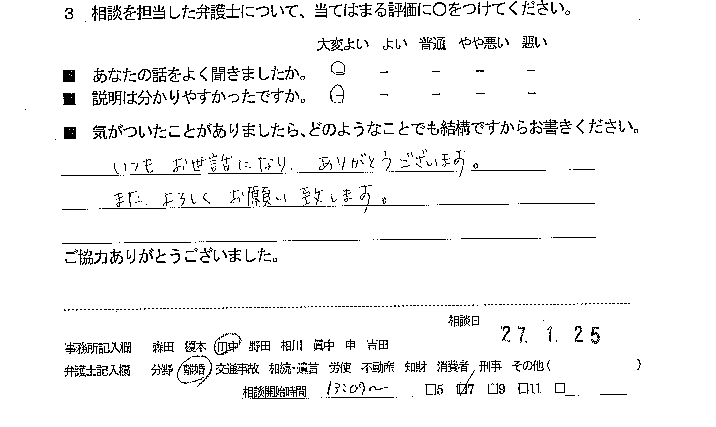 3 相談を担当した弁護士について、当てはまる評価に○をつけてください。
大変よい よい 普通 やや悪い 悪い
■ あなたの話をよく聞きましたか。 ○ － － － －
■ 説明は分かりやすかったですか。 ○ － － － －
■ 気がついたことがありましたら、どのようなことでも結構ですからお書きください。
いつも お世話になり、ありがとうございます。
また、よろしく お願い致します。
ご協力ありがとうございました。
相談日 27. 1. 25
事務所記入欄 森田 榎本 田中 野田 相川 眞中 申 吉田
弁護士記入欄 分野 離婚 交通事故 相続・遺言 労使 不動産 知財 消費者 刑事 その他( )
相談開始時間 13:09〜 □5 □7 □9 □11 □